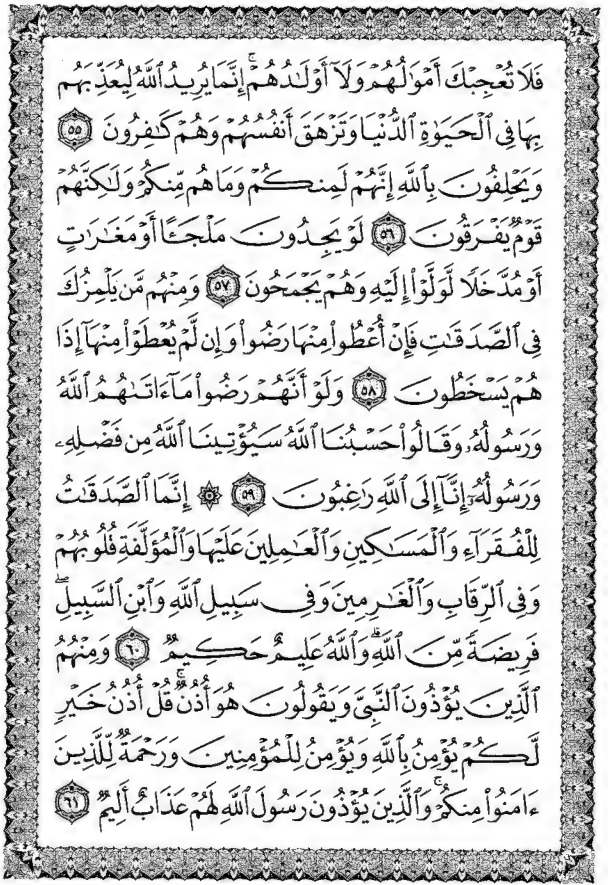 فَلَا تُعْجِبْكَ أَمْوَٰلُهُمْ وَلَآ أَوْلَٰدُهُمْ ۚ إِنَّمَا يُرِيدُ ٱللَّهُ لِيُعَذِّبَهُم
بِهَا فِى ٱلْحَيَوٰةِ ٱلدُّنْيَا وَتَزْهَقَ أَنفُسُهُمْ وَهُمْ كَٰفِرُونَ ۝٥٥
وَيَحْلِفُونَ بِٱللَّهِ إِنَّهُمْ لَمِنكُمْ وَمَا هُم مِّنكُمْ وَلَٰكِنَّهُمْ
قَوْمٌ يَفْرَقُونَ ۝٥٦ لَوْ يَجِدُونَ مَلْجَـًٔا أَوْ مَغَٰرَٰتٍ
أَوْ مُدَّخَلًا لَّوَلَّوْا۟ إِلَيْهِ وَهُمْ يَجْمَحُونَ ۝٥٧ وَمِنْهُم مَّن يَلْمِزُكَ
فِى ٱلصَّدَقَٰتِ فَإِنْ أُعْطُوا۟ مِنْهَا رَضُوا۟ وَإِن لَّمْ يُعْطَوْا۟ مِنْهَآ إِذَا
هُمْ يَسْخَطُونَ ۝٥٨ وَلَوْ أَنَّهُمْ رَضُوا۟ مَآ ءَاتَىٰهُمُ ٱللَّهُ
وَرَسُولُهُۥ وَقَالُوا۟ حَسْبُنَا ٱللَّهُ سَيُؤْتِينَا ٱللَّهُ مِن فَضْلِهِۦ
وَرَسُولُهُۥٓ إِنَّآ إِلَى ٱللَّهِ رَٰغِبُونَ ۝٥٩ ۞ إِنَّمَا ٱلصَّدَقَٰتُ
لِلْفُقَرَآءِ وَٱلْمَسَٰكِينِ وَٱلْعَٰمِلِينَ عَلَيْهَا وَٱلْمُؤَلَّفَةِ قُلُوبُهُمْ
وَفِى ٱلرِّقَابِ وَٱلْغَٰرِمِينَ وَفِى سَبِيلِ ٱللَّهِ وَٱبْنِ ٱلسَّبِيلِ ۖ
فَرِيضَةً مِّنَ ٱللَّهِ ۗ وَٱللَّهُ عَلِيمٌ حَكِيمٌ ۝٦٠ وَمِنْهُمُ
ٱلَّذِينَ يُؤْذُونَ ٱلنَّبِىَّ وَيَقُولُونَ هُوَ أُذُنٌ ۚ قُلْ أُذُنُ خَيْرٍ
لَّكُمْ يُؤْمِنُ بِٱللَّهِ وَيُؤْمِنُ لِلْمُؤْمِنِينَ وَرَحْمَةٌ لِّلَّذِينَ
ءَامَنُوا۟ مِنكُمْ ۚ وَٱلَّذِينَ يُؤْذُونَ رَسُولَ ٱللَّهِ لَهُمْ عَذَابٌ أَلِيمٌ ۝٦١